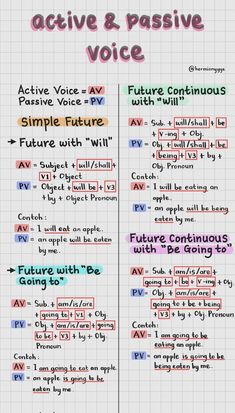 active & passive
voice
@hermionyyyx
Active Voice = AV
Passive Voice = PV
Simple Future
→ Future with "Will"
AV = Subject + will/shall +
V1 + Object
PV = Object + will be + V3
+ by + Object Pronoun
Contoh:
AV = I will eat an apple.
PV = an apple will be eaten
by me.
→ Future with "Be
Going to"
AV = Sub. + am/is/are +
going to + V1 + Obj.
PV = Obj. + am/is/are + going
to be + V3 + by + Obj.
Pronoun
Contoh:
AV = I am going to eat an apple.
PV = an apple is going to be
eaten by me.
Future Continuous
with "Will"
AV = Sub. + will/shall + be
+ V-ing + Obj.
PV = Obj. + will/shall + be +
being + V3 + by + Obj.
Pronoun
Contoh:
AV = I will be eating an
apple.
PV = an apple will be being
eaten by me.
Future Continuous
with "Be Going to"
AV = Sub. + am/is/are +
going to + be + V-ing + Obj.
PV = Obj. + am/is/are +
going to be + being + V3
+ by + Obj. Pronoun
Contoh:
AV = I am going to be
eating an apple.
PV = an apple is going to be
being eaten by me.